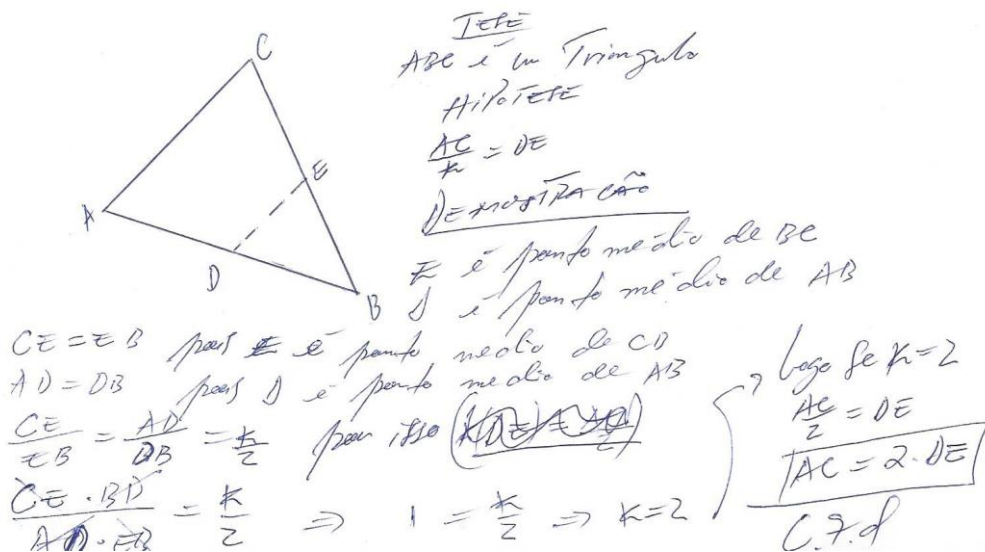 C
E
A
D
B
TESE
ABC é um Triangulo
HIPOTESE
AC/K = DE
DEMOSTRACÃO
E é ponto médio de BC
D é ponto médio de AB
CE = EB pois E é ponto medio de CB
AD = DB pois D é ponto medio de AB
CE/EB = AD/DB = K/2 por isso
CE · BD / AD · EB = K/2 ⇒ 1 = K/2 ⇒ K=2
Logo se K=2
AC/2 = DE
AC = 2·DE
C.q.d